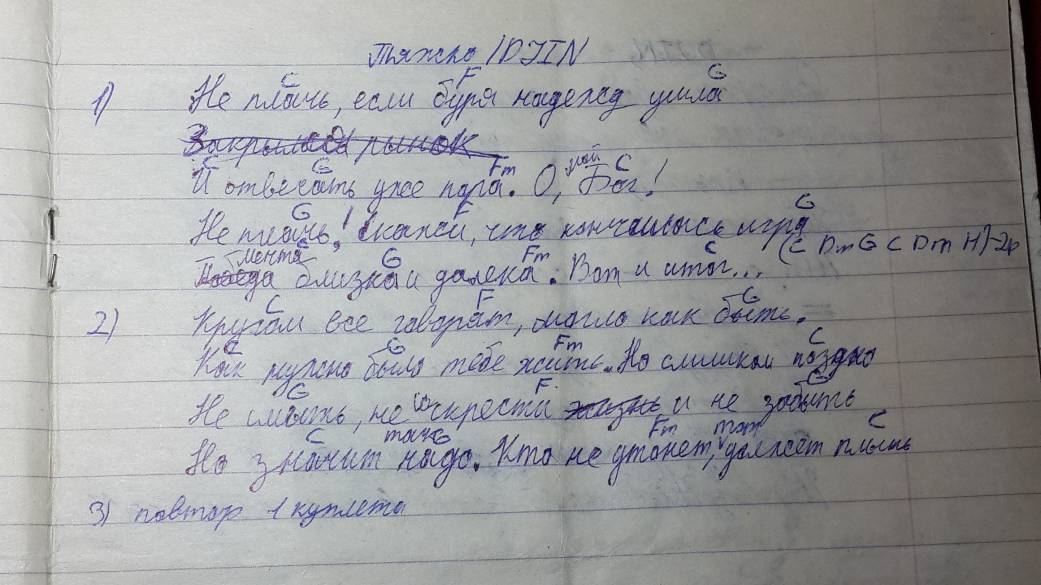 Тяжко / DJIN
C F G
1) Не плачь, если буря надежд ушла
Закрылся рынок
C G Fm мой C
И отвечать уже пора. О, Бог!
G F G
Не плачь! Скажи, что кончилась игра
мечта C G Fm C (C Dm G C Dm H)-2р
Победа близка и далека. Вот и итог...
C F G
2) Кругом все говорят, могло как быть.
C G Fm C
Как нужно было тебе жить. Но слишком поздно
G со F G
Не смыть, не скрести жизнь и не забыть
C так G Fm тот C
Но значит надо. Кто не утонет, должен плыть
3) повтор 1 куплета